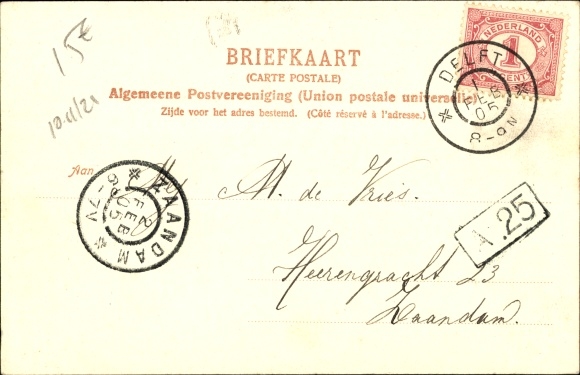 15€
10-11/21
NEDERLAND
1
CENT
DELFT
1
FEB
05
8-9N
BRIEFKAART
(CARTE POSTALE)
Algemeene Postvereeniging (Union postale universelle)
Zijde voor het adres bestemd. (Côté réservé à l'adresse.)
Aan
M. de Vries.
ZAANDAM
2
FEB
05
6-7V
A.25
Heerengracht 23
Zaandam.